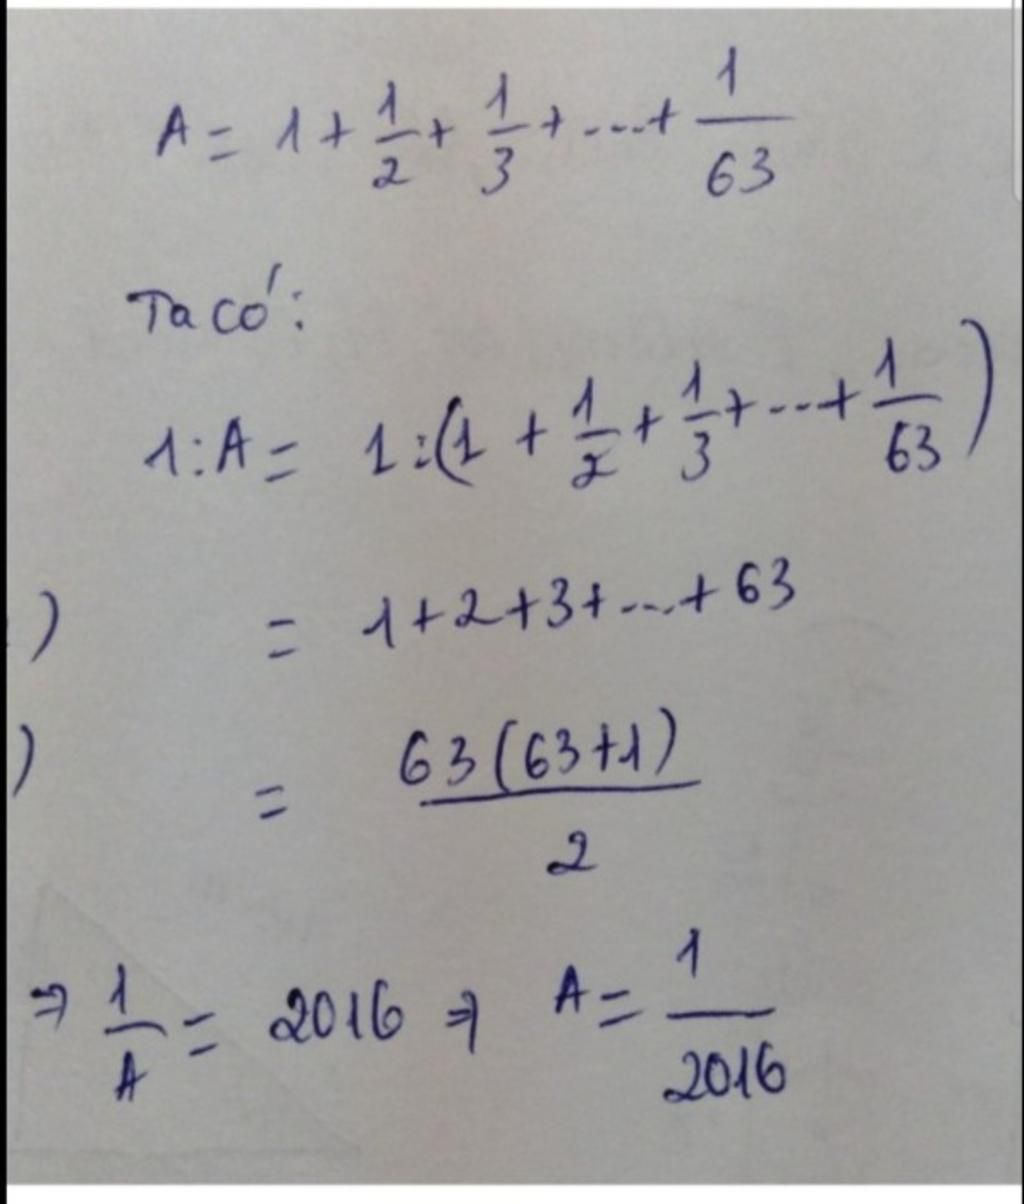 A = 1 + 1/2 + 1/3 + ... + 1/63
Ta có:
1 : A = 1 : (1 + 1/2 + 1/3 + ... + 1/63)
) = 1 + 2 + 3 + ... + 63
) = 63(63+1)/2
⇒ 1/A = 2016 ⇒ A = 1/2016